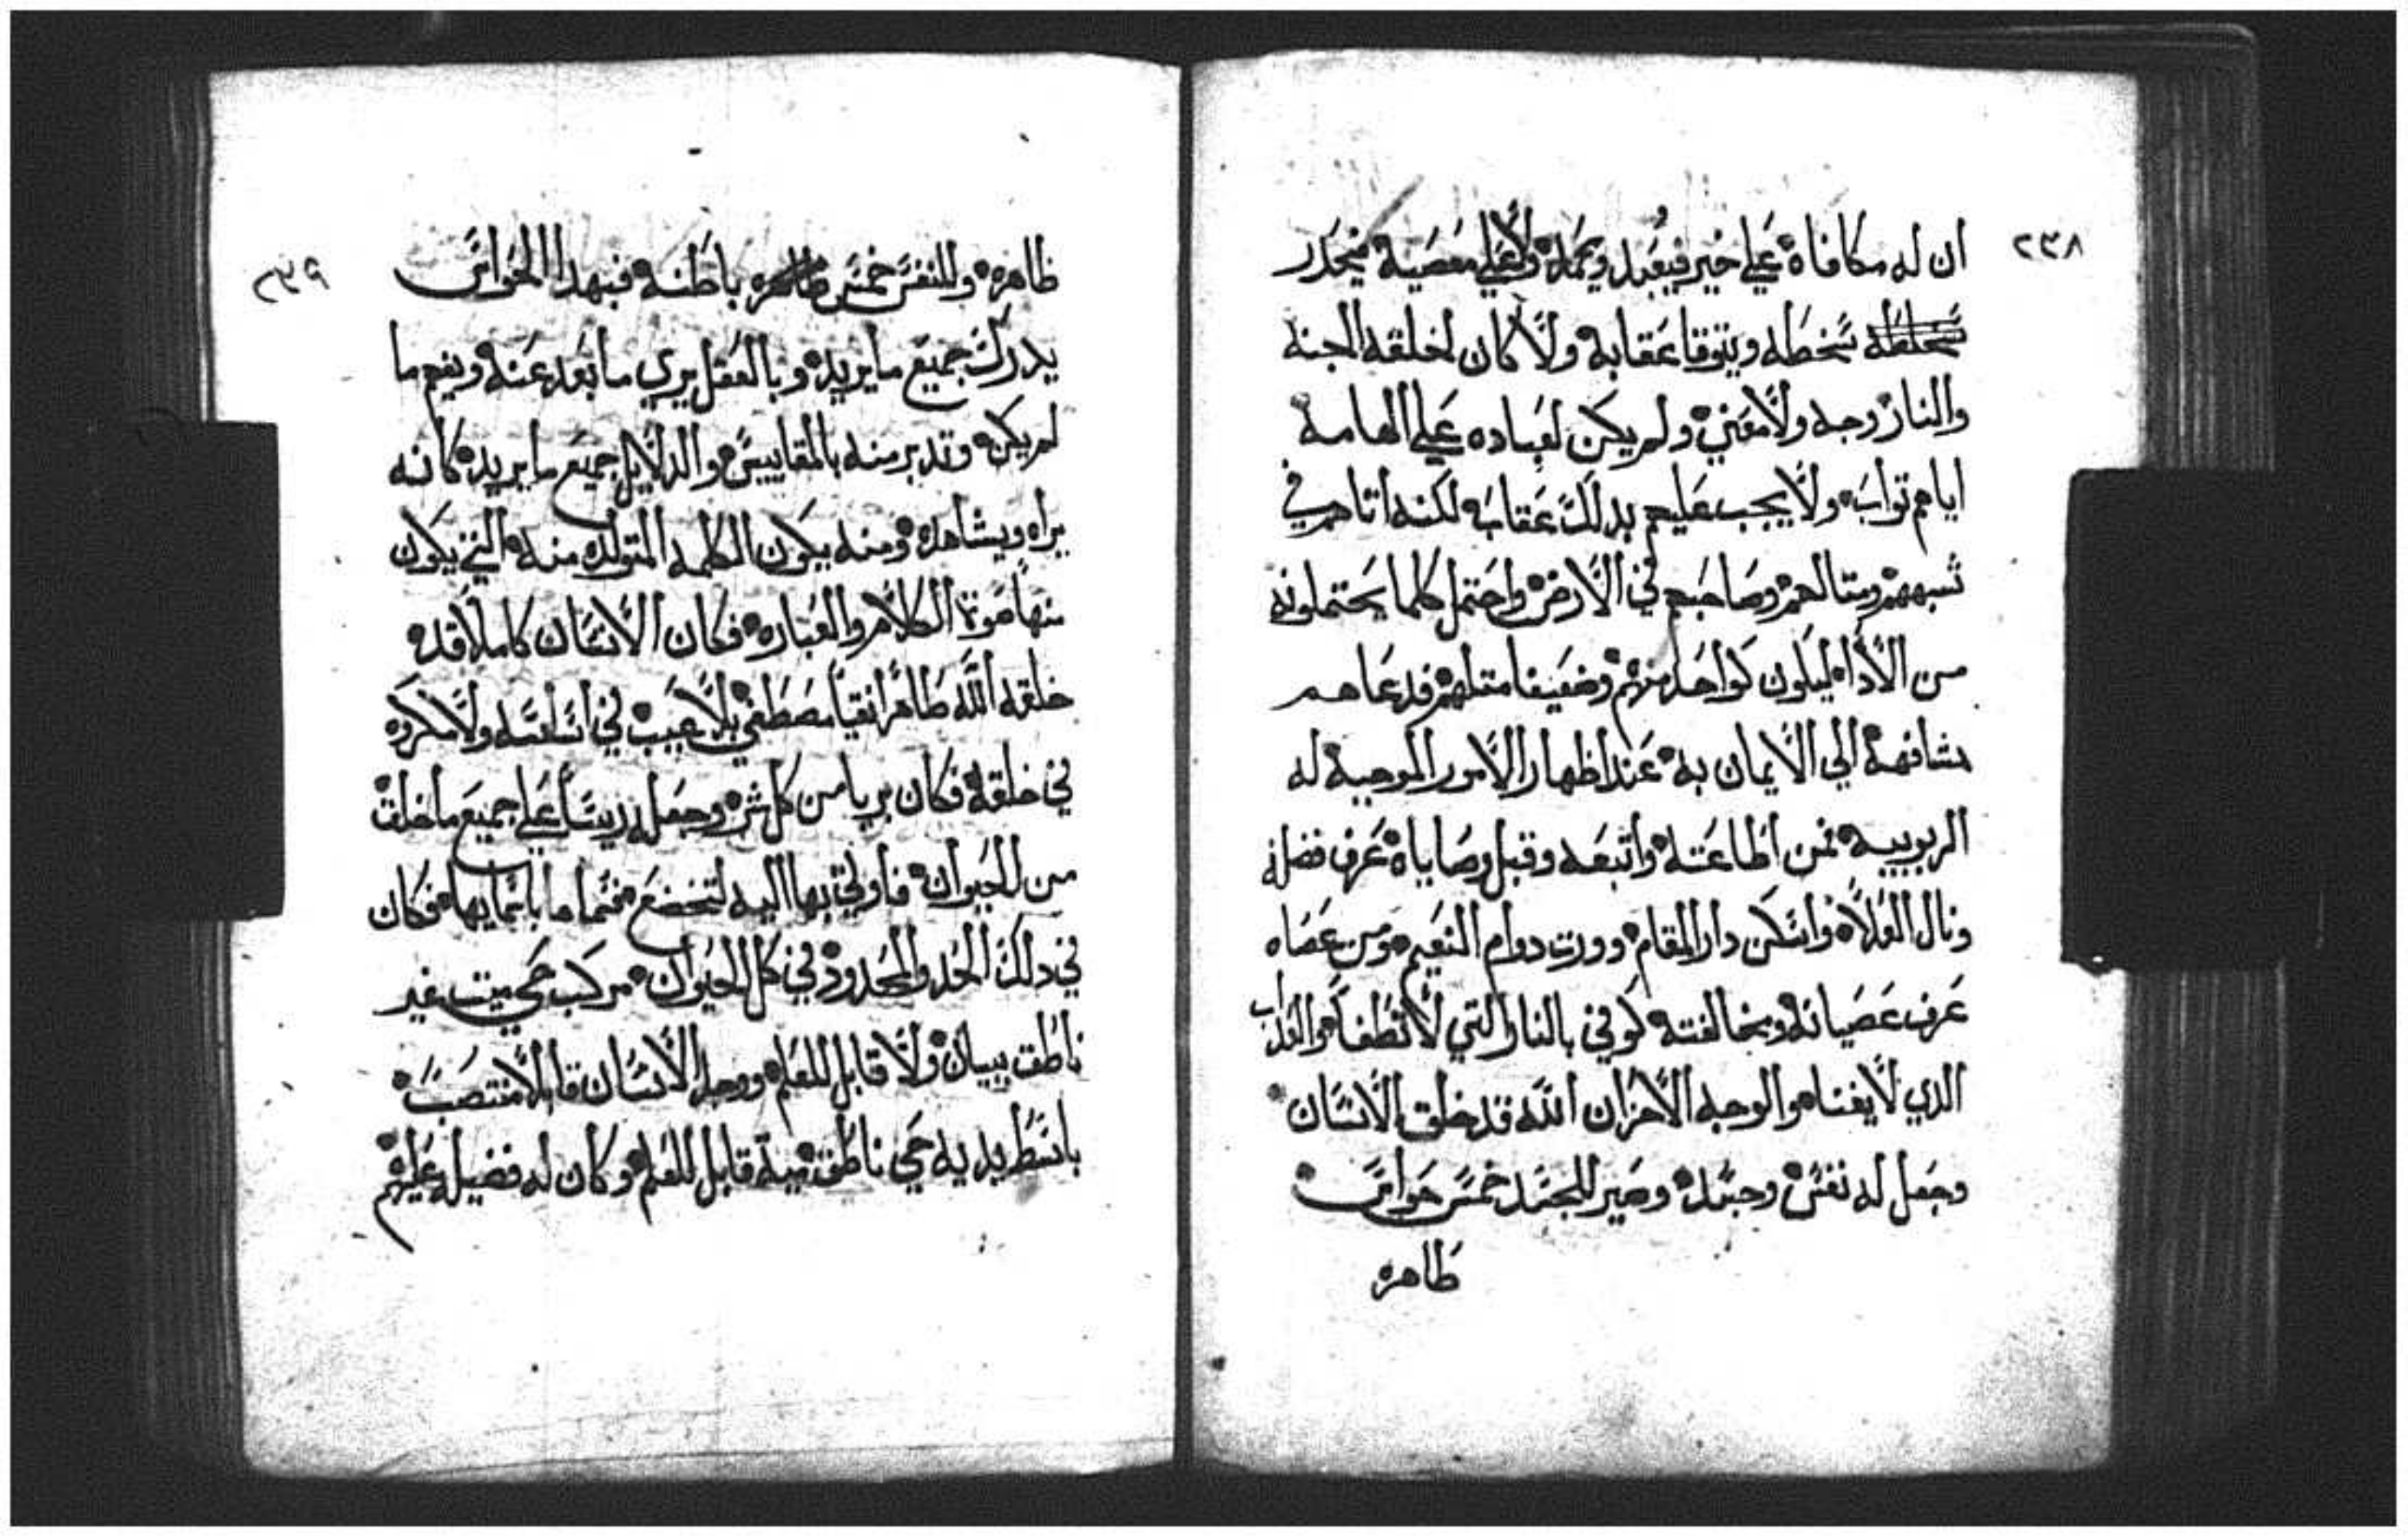 ٢٣٨
ان له مكافاه علي خير فيعبد ويحمد ولا علي معصية فيحدر
سخطه ويتوقا عقابه ولا كان لخلقه الجنه
والنار وجه ولا معني ولم يكن لعباده علي الهامه
اياهم تواب ولا يجب عليهم بدلك عقاب لكنه اتاهم في
شبههم ومتالهم وصاحبهم في الارض واحتمل كلما يحتملونه
من الادا ليكون كواحد منهم وضعيفا متلهم فدعاهم
مشافهة الي الايمان به عند اظهار الامور الموجبة له
الربوبيه فمن اطاعته واتبعه وقبل وصاياه عرف فضله
ونال العلاه واسكن دار المقام وورت دوام النعيم ومن عصاه
عرف عصيانه ومخالفته كوفي بالنار التي لا تطفا والعداب
الدي لا يفنا والوجه الاخر ان الله قد خلق الانسان
وجعل له نفس وجسد وصير للجسد خمس حواس
ظاهره
٢٣٩
ظاهره وللنفس خمس باطنه فبهدا الحواس
يدرك جميع ما يريد وبالعقل يري ما بعد عنه ويفهم ما
لم يكن وتدبر منه بالمقاييس والدلايل جميع ما يريد كانه
يراه ويشاهده ومنه يكون الكلمه المتولده منه التي يكون
منها صوت الكلام والعباره فكان الانسان كاملا قد
خلقه الله طاهرا نقيا مصطفي بلا عيب في ولا مكروه
في خلقه فكان بريا من كل شر وجعله رييسا علي جميع ما خلق
من الحيوان بها اليه لتخضع باسمايها فكان
في دلك الحد والمحدود في كل الحيوان مركب حي ميت غير
ناطق ببيان ولا قابل للعلم ووجد الانسان منتصب
باسط يديه حي ناطق ميت قابل للعلم وكان له فضيله عليهم